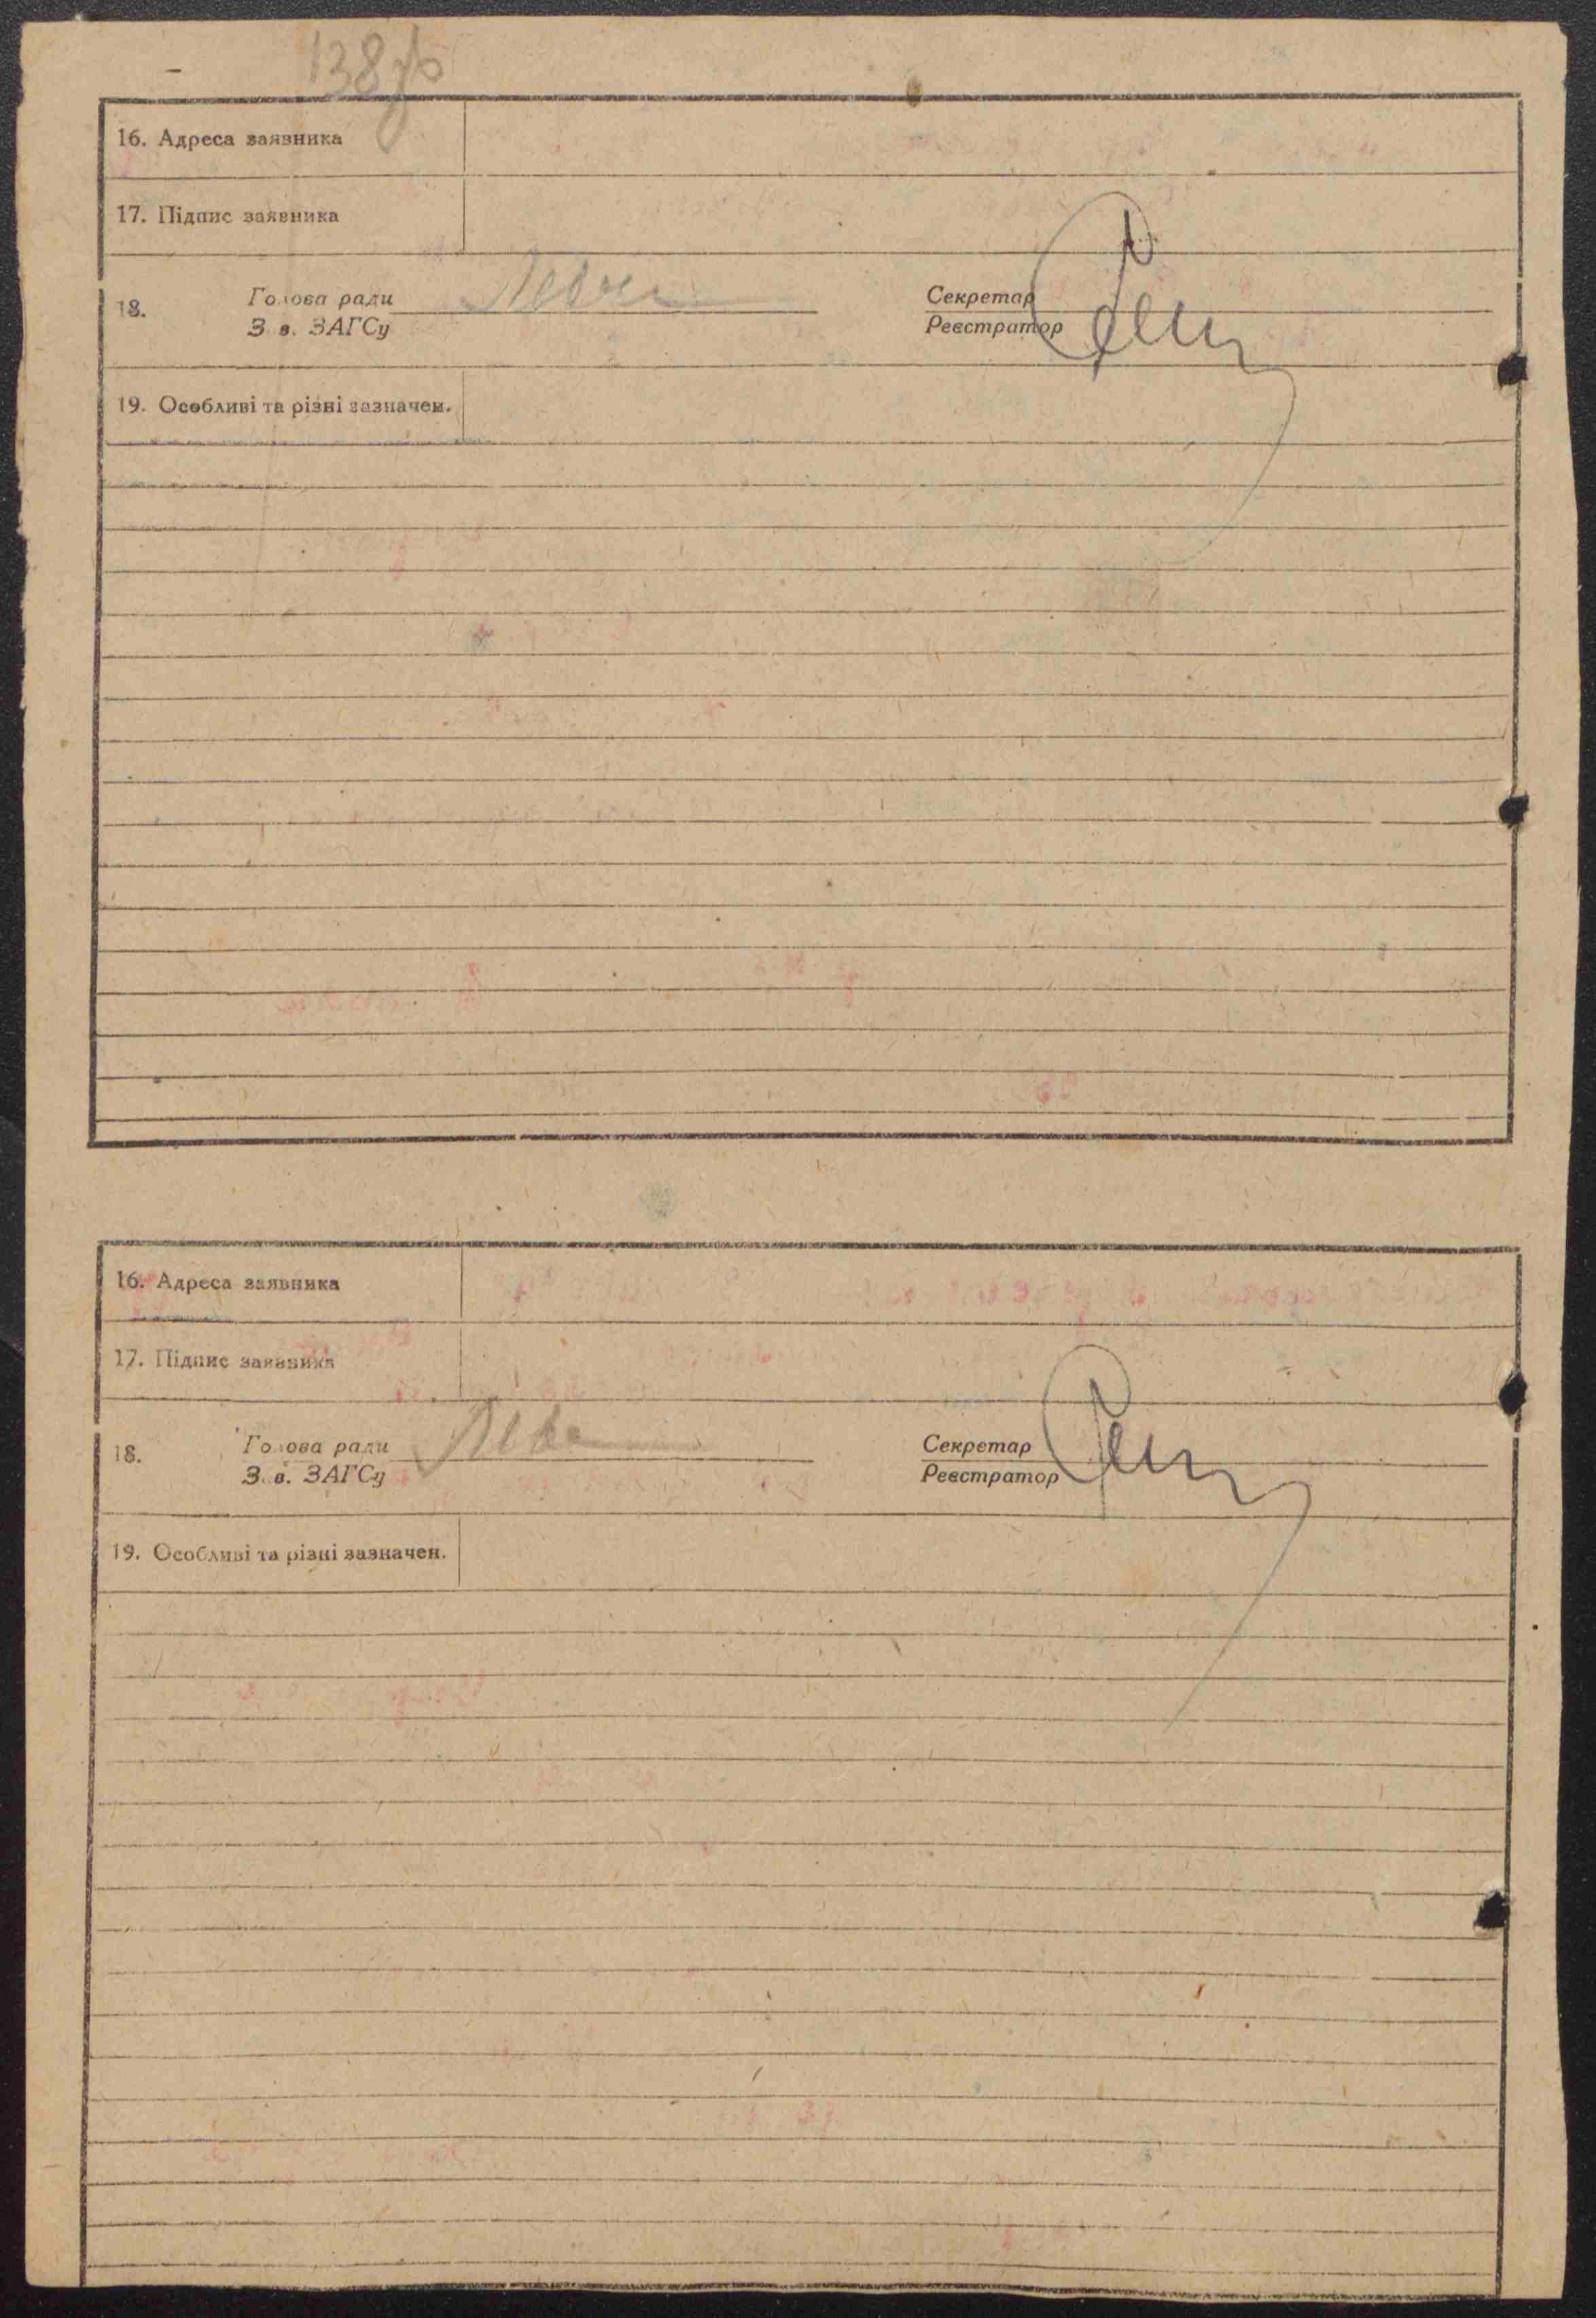 138зв
16. Адреса заявника
17. Підпис заявника
18. Голова ради Секретар
З. в. ЗАГСу Реєстратор
19. Особливі та різні зазначен.
16. Адреса заявника
17. Підпис заявника
18. Голова ради Секретар
З. в. ЗАГСу Реєстратор
19. Особливі та різні зазначен.